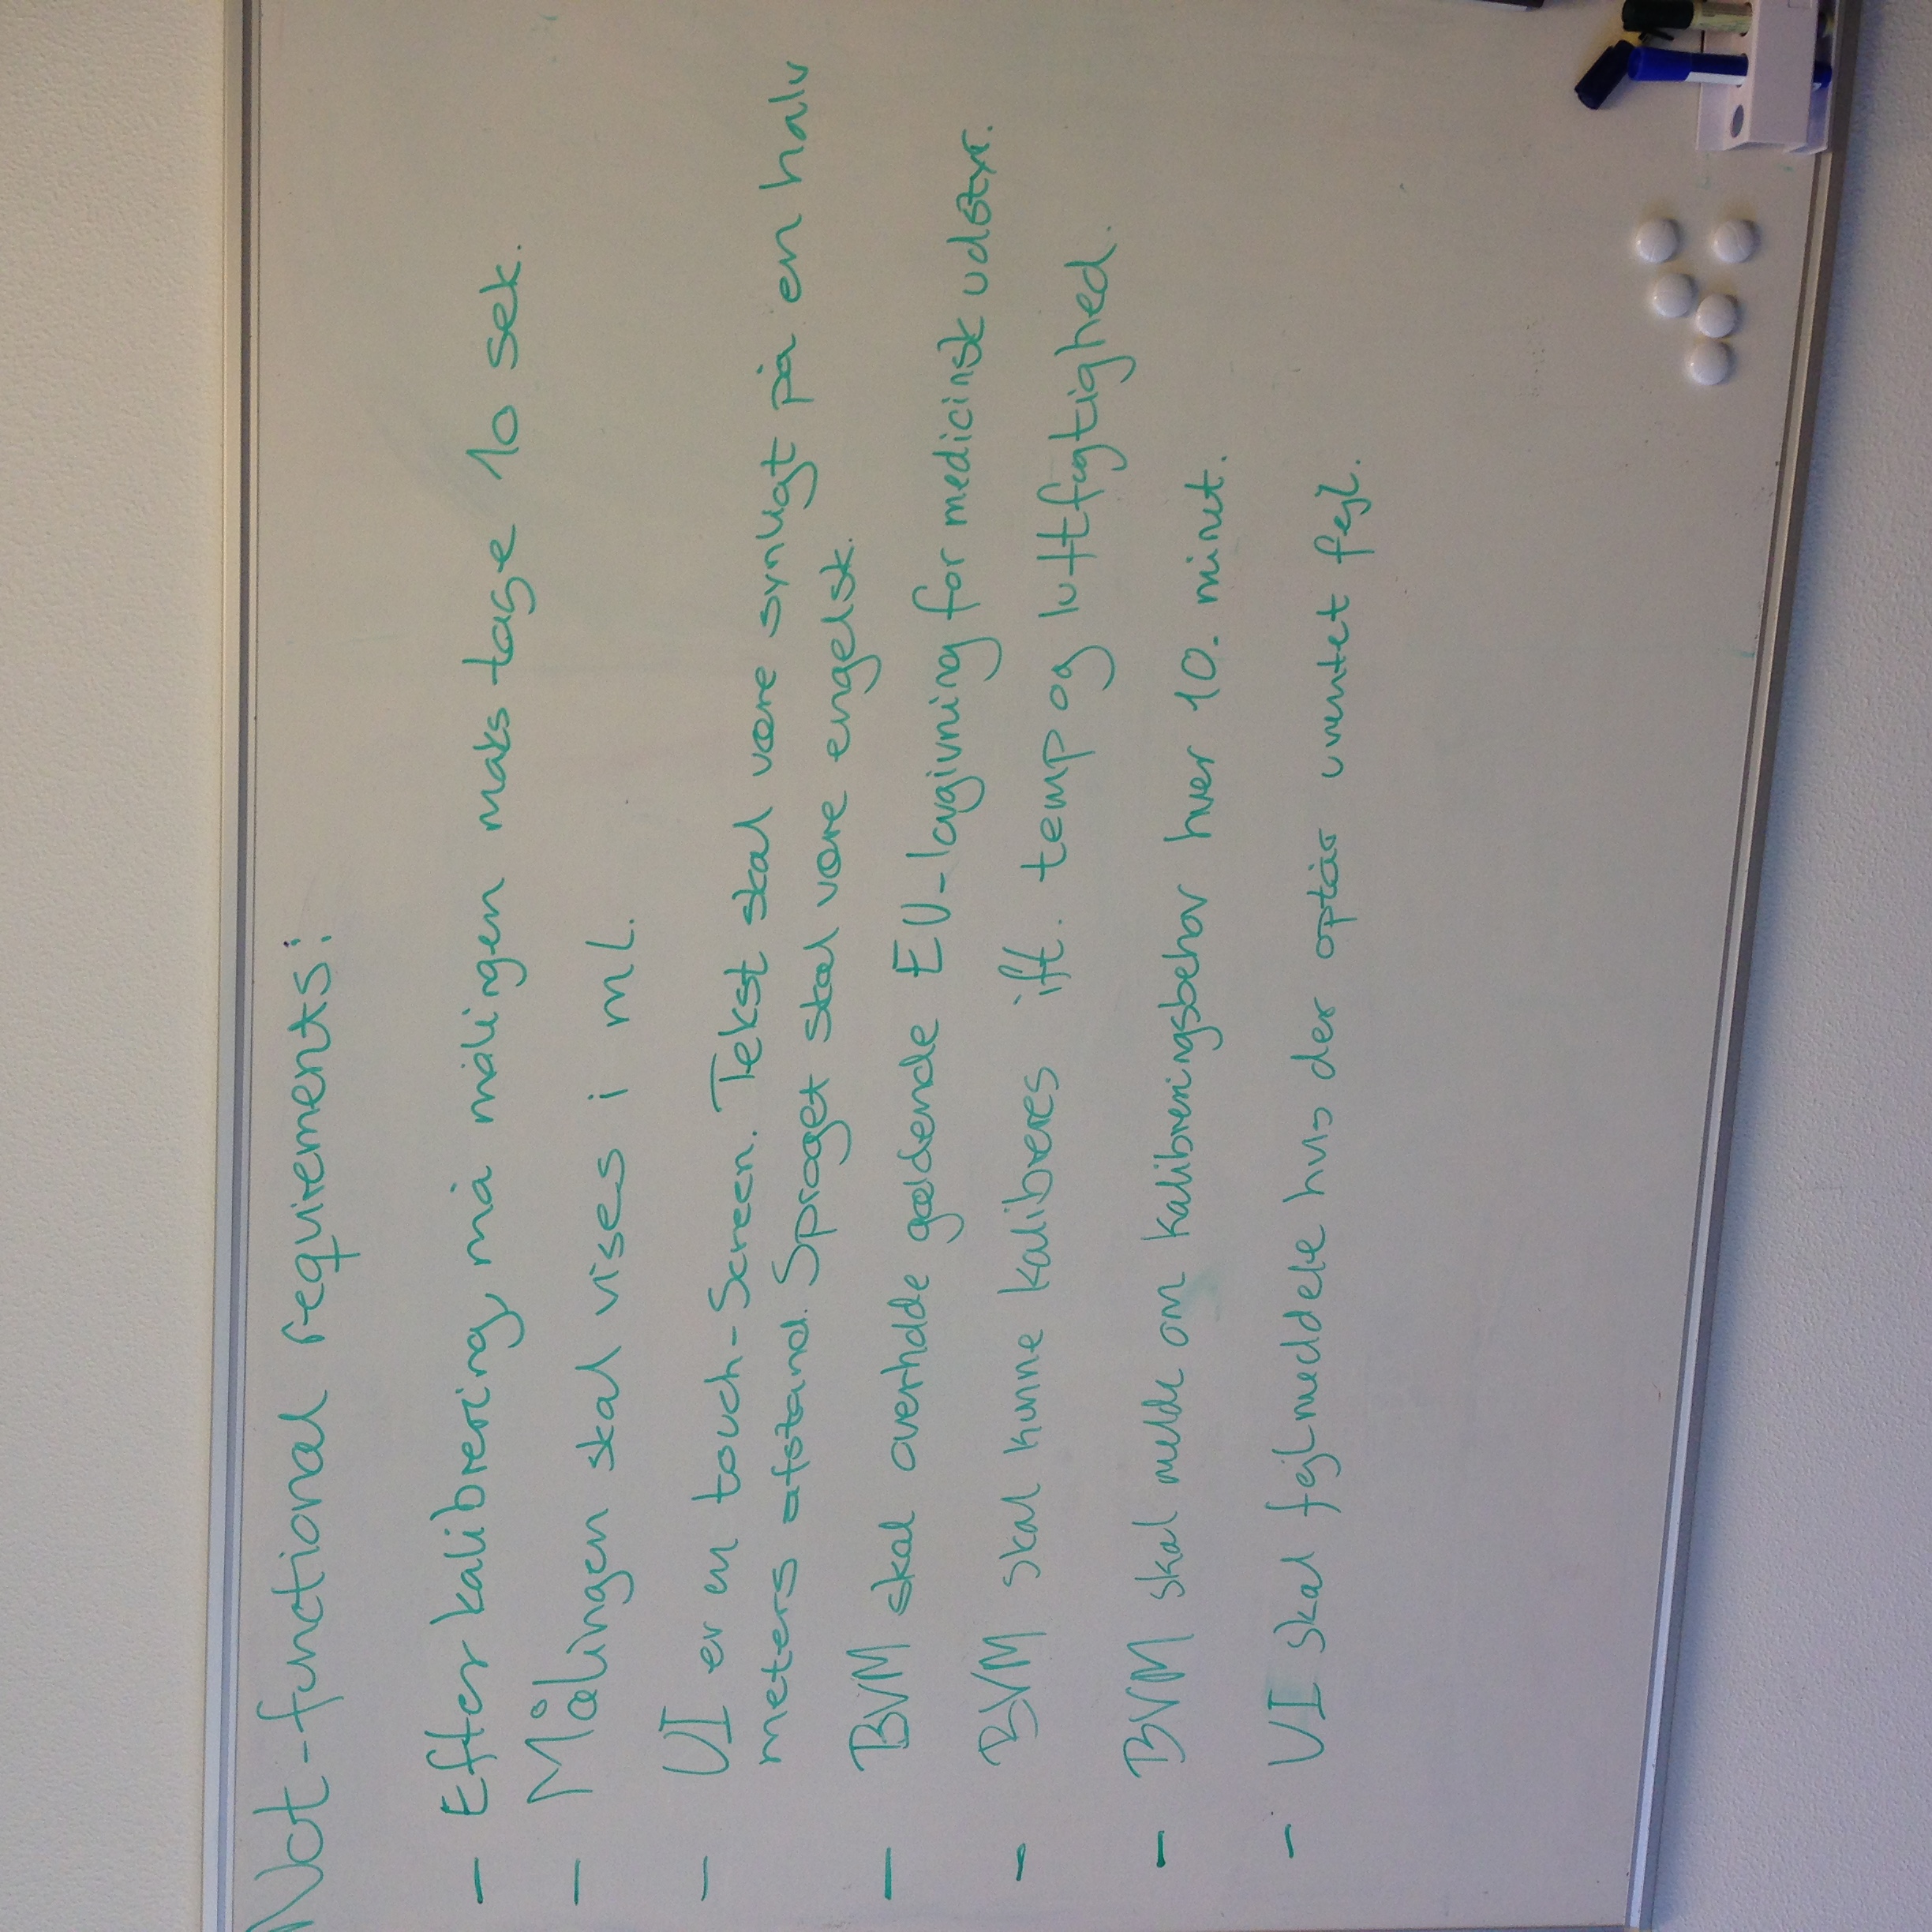 Not-functional requirements:
- Efter kalibrering, må målingen maks tage 10 sek.
- Målingen skal vises i ml.
- UI er en touch-Screen. Tekst skal være synligt på en halv
meters afstand. Sproget skal være engelsk.
- BVM skal overholde gældende EU-lovgivning for medicinsk udstyr.
- BVM skal kunne kalibreres ift. temp og luftfugtighed.
- BVM skal melde om kalibreringsbehov hver 10. minut.
- UI skal fejlmeddele hvis der optår uventet fejl.